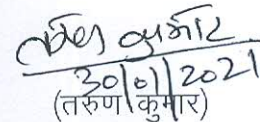 तरुण कुमार
30/01/2021
(तरुण कुमार)